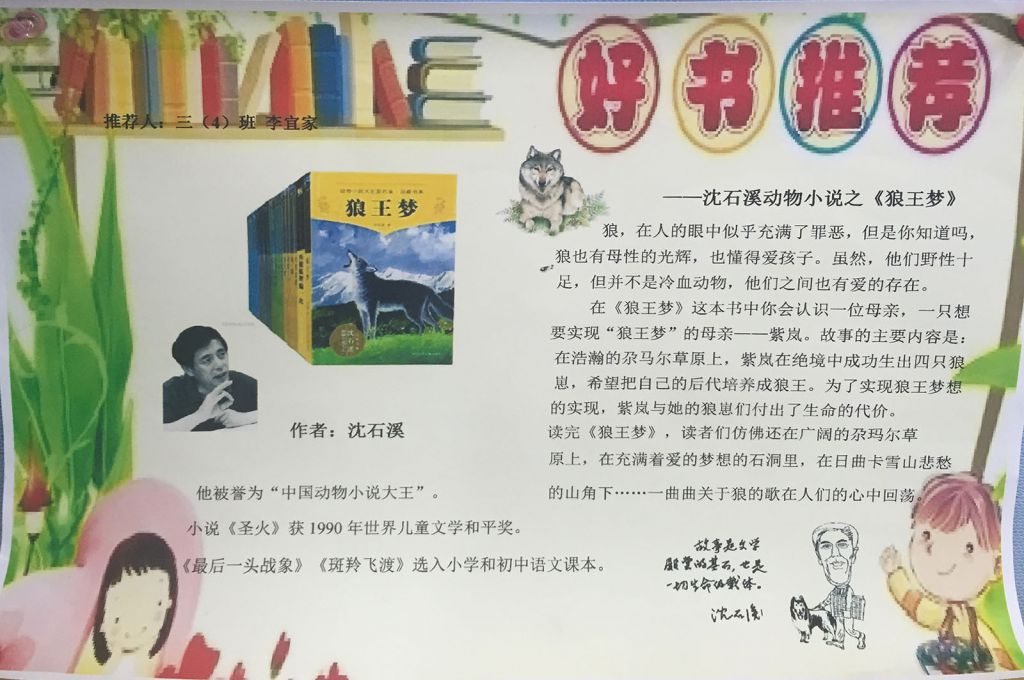 好书推荐
推荐人：三（4）班 李宜家
狼王梦
作者：沈石溪
他被誉为“中国动物小说大王”。
小说《圣火》获 1990 年世界儿童文学和平奖。
《最后一头战象》《斑羚飞渡》选入小学和初中语文课本。
——沈石溪动物小说之《狼王梦》
狼，在人的眼中似乎充满了罪恶，但是你知道吗，
狼也有母性的光辉，也懂得爱孩子。虽然，他们野性十
足，但并不是冷血动物，他们之间也有爱的存在。
在《狼王梦》这本书中你会认识一位母亲，一只想
要实现“狼王梦”的母亲——紫岚。故事的主要内容是：
在浩瀚的尕马尔草原上，紫岚在绝境中成功生出四只狼
崽，希望把自己的后代培养成狼王。为了实现狼王梦想
的实现，紫岚与她的狼崽们付出了生命的代价。
读完《狼王梦》，读者们仿佛还在广阔的尕玛尔草
原上，在充满着爱的梦想的石洞里，在日曲卡雪山悲愁
的山角下……一曲曲关于狼的歌在人们的心中回荡。
故事是文学
殿堂的基石，也是
一切生命的载体。
沈石溪